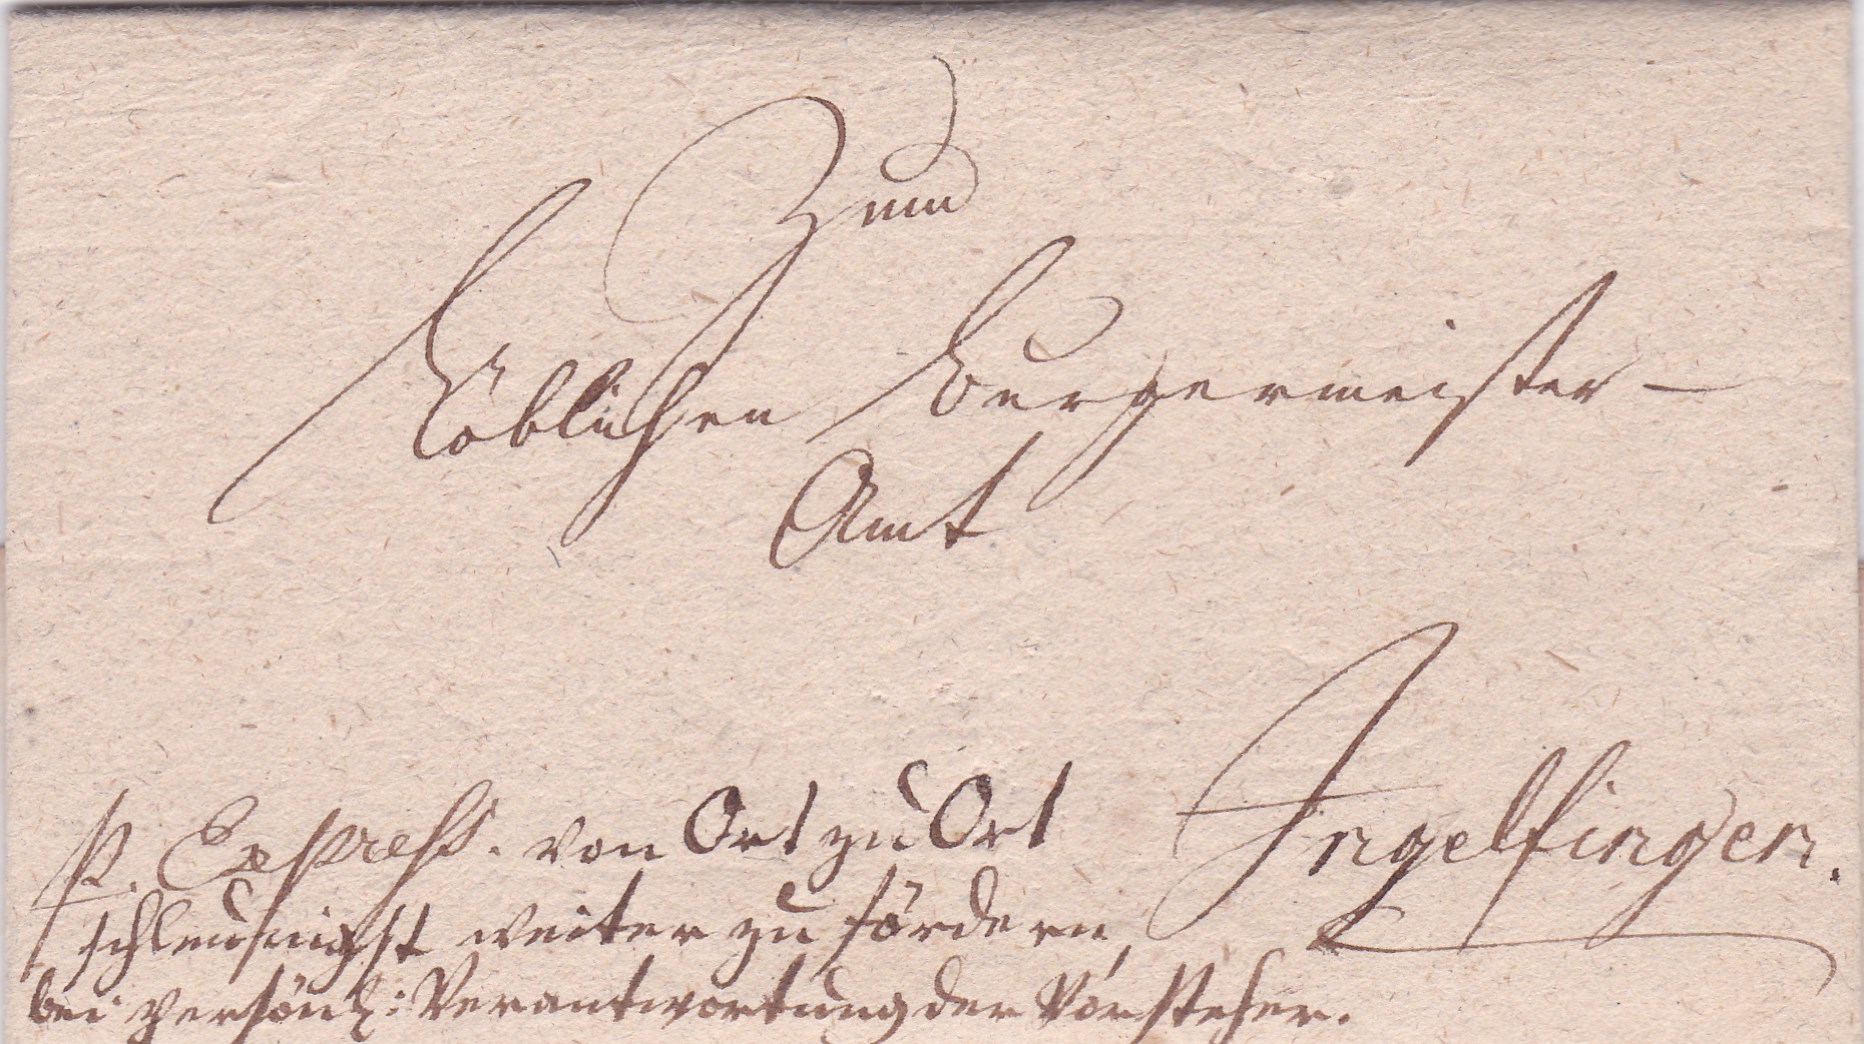 Zum
Löblichen Burgermeister-
Amt
Ingelfingen.
p. Express. von Ort zu Ort
schleunigst weiter zu fördern,
bei persönl: Verantwortung der Vorsteher.